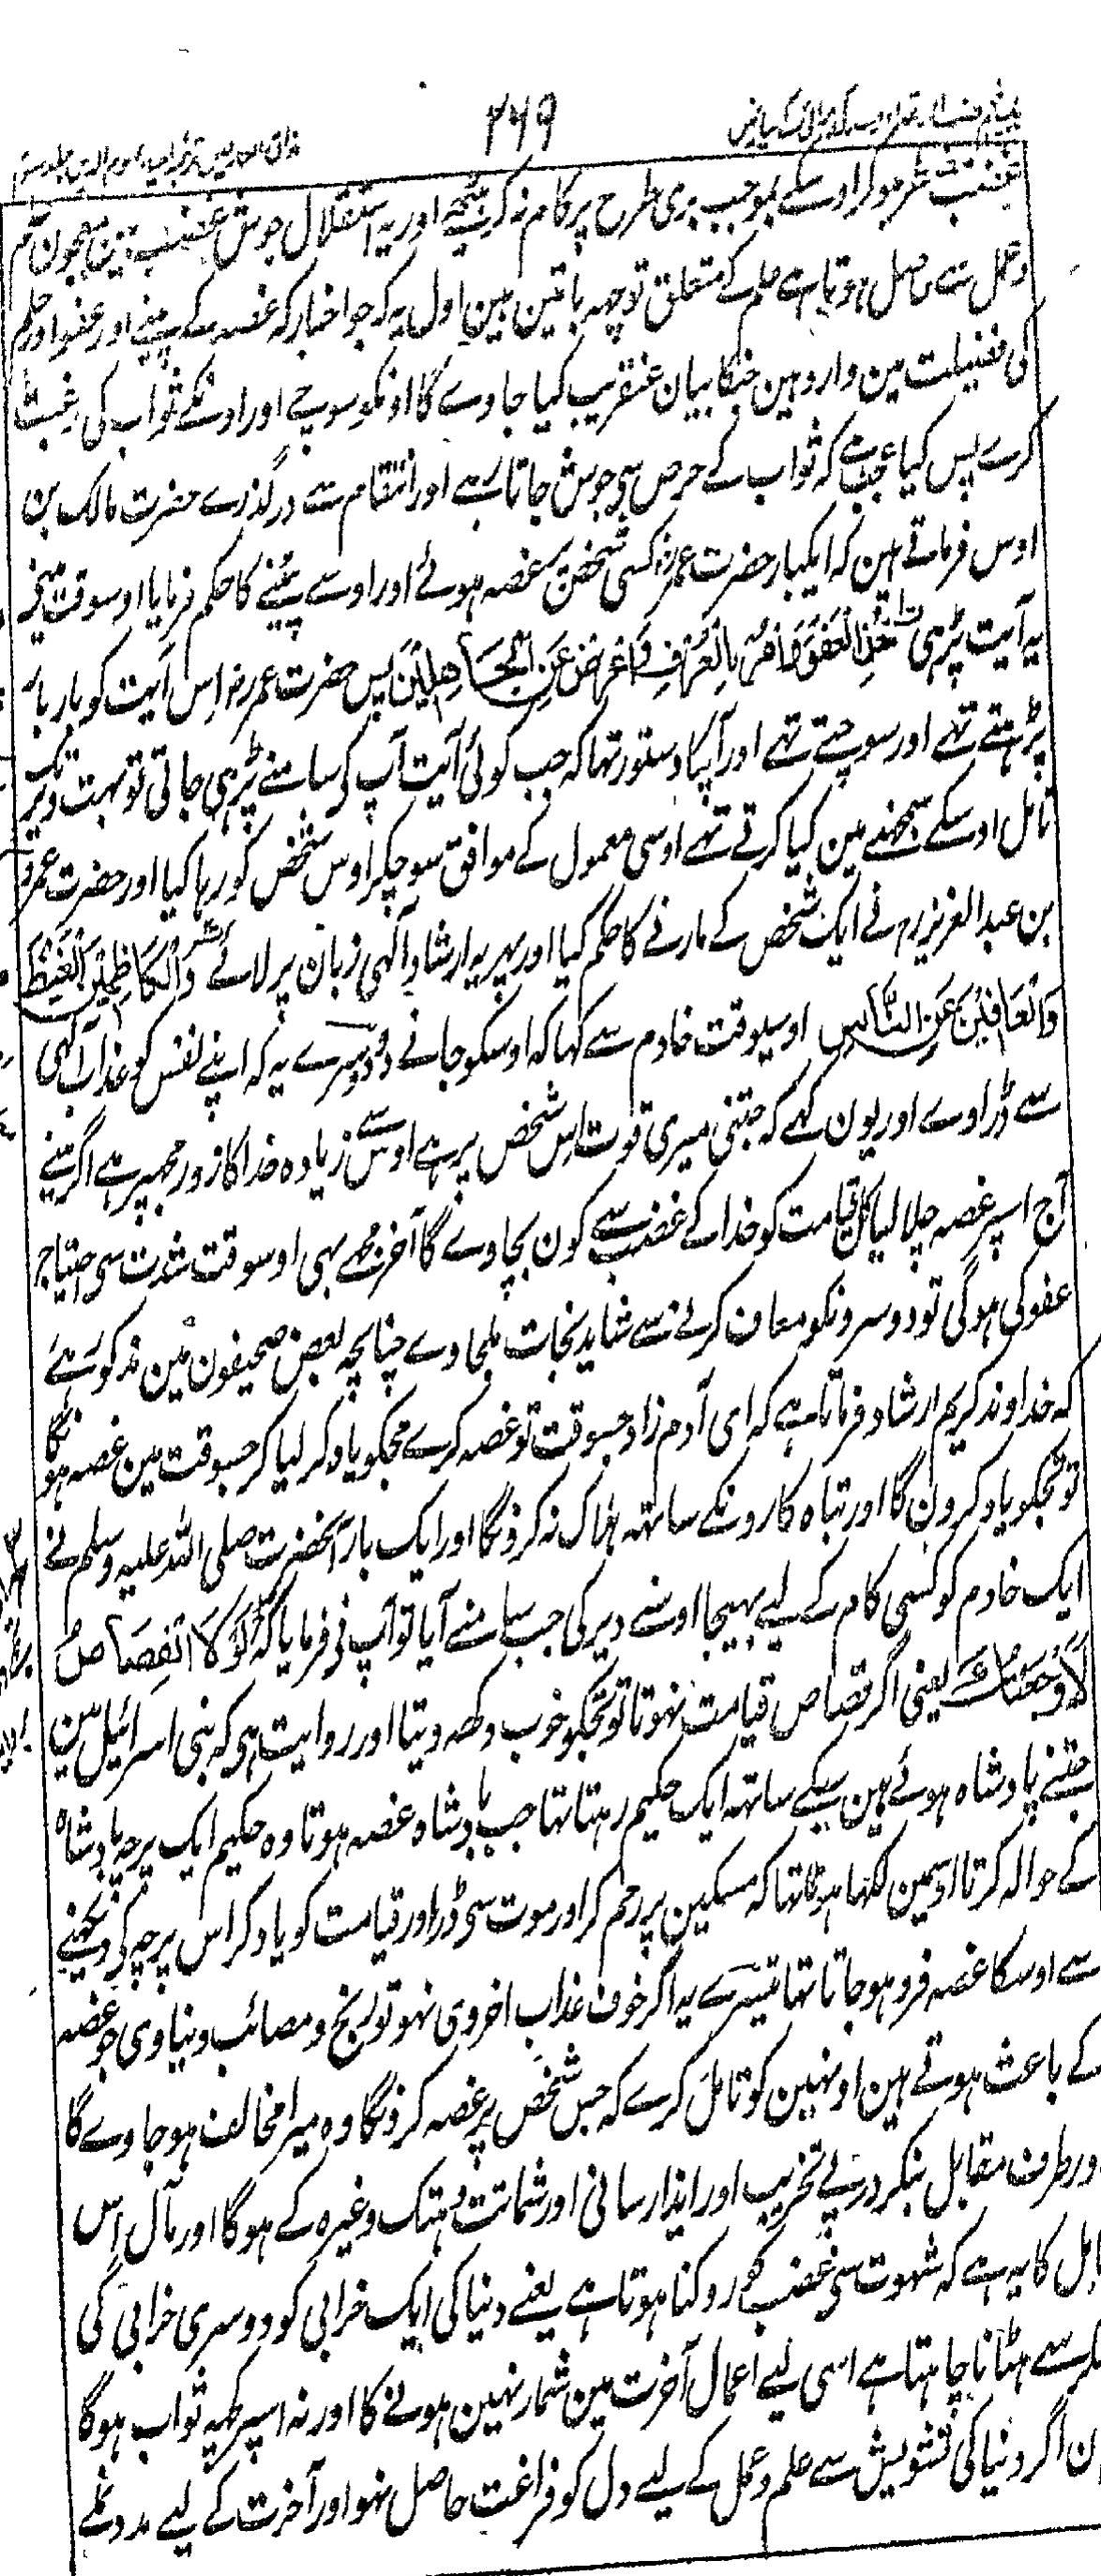 ۲۶۹
غضب مضطر ہو کر اوسکے بموجب بری طرح پر کام نہ کر بیٹھے اور یہ استقلال جوش غضب مین معجون علم
وعمل سے حاصل ہوتا ہے علم کے متعلق تو چھہ باتین ہین اول یہ کہ جو اخبار کہ غصہ کے پینے اور عفو اور حلم
کی فضیلت مین وارد ہین جنکا بیان عنقریب کیا جاوے گا اونکو سوچے اور اونکے ثواب کی رغبت
کرے پس کیا عجب ہے کہ ثواب کے حرص سی جوش جاتا رہے اور انتقام سے درگذرے حضرت مالک بن
اوس فرماتے ہین کہ ایکبار حضرت عمرؓ کسی شخص پر غصہ ہوئے اور اوسے پیٹنے کا حکم فرمایا اوسوقت مینے
یہ آیت پڑہی خُذِ الْعَفْوَ وَأْمُرْ بِالْعُرْفِ وَأَعْرِضْ عَنِ الْجَاهِلِيْنَ پس حضرت عمرؓ اس آیت کو بار بار
پڑہتے تہے اور سوچتے تہے اور آپکا دستور تہا کہ جب کوئی آیت آپ کی سامنے پڑہی جاتی تو بہت دیر تک
تامل اوسکے سمجھنے مین کیا کرتے تہے اوسی معمول کے موافق سوچکر اوس شخص کو رہا کیا اور حضرت عمرؓ
بن عبدالعزیزؒ نے ایک شخص کے مارنے کا حکم کیا اور پہر یہ ارشاد آلہی زبان پر لائے وَالْكَاظِمِيْنَ الْغَيْظَ
وَالْعَافِيْنَ عَنِ النَّاسِ اوسیوقت خادم سے کہا کہ اوسکو جانے دو دوسرے یہ کہ اپنے نفس کو عذاب آلہی
سے ڈراوے اور یون کہے کہ جتنی میری قوت اس شخص پر ہے اوس سے زیادہ خدا کا زور مجہپر ہے اگر مینے
آج اسپر غصہ چلا لیا کل قیامت کو خدا کے غضب سے کون بچاوے گا آخر مجھے بہی اوسوقت شدت سی احتیاج
عفو کی ہوگی تو دوسرونکو معاف کرنے سے شاید نجات ملجاوے چنانچہ بعض صحیفون مین مذکور ہے
کہ خداوند کریم ارشاد فرماتا ہے کہ ای آدم زاد جسوقت تو غصہ کرے مجکو یاد کر لیا کر جسوقت مین غصہ ہونگا
تو تجکو یاد کرون گا اور تباہ کارونکے ساتہہ ہلاک نہ کرونگا اور ایک بار آنحضرت صلی اللہ علیہ وسلم نے
ایک خادم کو کسی کام کے لیے بہیجا اوسنے دیر کی جب سامنے آیا تو آپ نے فرمایا کہ لَوْلَا الْقِصَاصُ
لَأَوْجَعْتُكَ یعنی اگر قصاص قیامت نہوتا تو تجکو خوب دکھہ دیتا اور روایت ہی کہ بنی اسرائیل مین
جتنے پادشاہ ہوئے ہین سبکے ساتہہ ایک حکیم رہتا تہا جب پادشاہ غصہ ہوتا وہ حکیم ایک پرچہ پادشاہ
کے حوالہ کرتا اوسمین لکہا ہوتا تہا کہ مسکین پر رحم کر اور موت سی ڈر اور قیامت کو یاد کر اس پرچہ کی دیکہنے
سے اوسکا غصہ فرو ہوجاتا تہا تیسرے یہ اگر خوف عذاب اخروی نہو تو رنج و مصائب دنیاوی جو غصہ
کے باعث ہوتے ہین اونہین کو تامل کرے کہ جس شخص پر غصہ کرونگا وہ میرا مخالف ہوجاوے گا
ور طرف مقابل بنکر درپے تخریب اور ایذا رسانی اور شماتت وہتک وغیرہ کے ہوگا اور مآل اس
مل کا یہ ہے کہ شہوت سی غضب کو روکنا ہوتا ہے یعنے دنیا کی ایک خرابی کو دوسری خرابی کی
سے ہٹانا چاہتا ہے اسی لیے اعمال آخرت مین شمار نہین ہونے کا اور نہ اسپر کچہہ ثواب ہوگا
ن اگر دنیا کی تشویش سے علم وعمل کے لیے دل کو فراغت حاصل نہو اور آخرت کے لیے مدد نملے